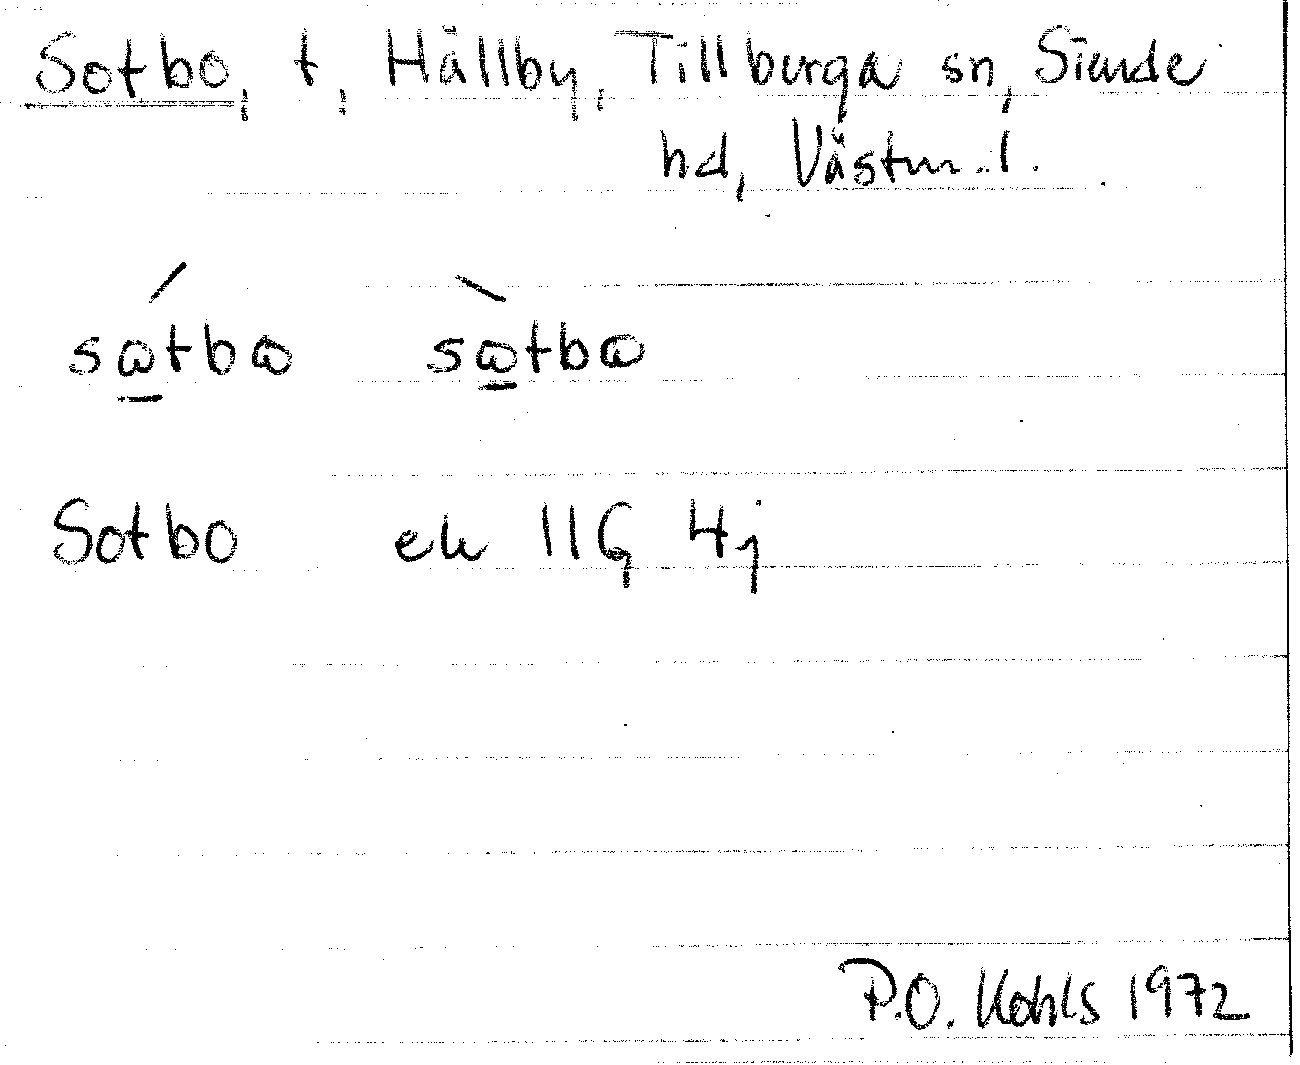 Sotbo, t, Hällby, Tillberga sn, Siende
hd, Västm.l.
sωtbω sωtbω
Sotbo ek 11G 4j
P.O. Kohls 1972